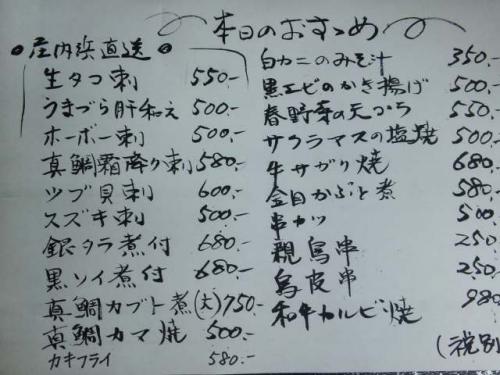 本日のおすすめ
庄内浜直送
生タコ刺 550.-
うまづら肝和え 500.-
ホーボー刺 500.-
真鯛霜降り刺 580.-
ツブ貝刺 600.-
スズキ刺 500.-
銀タラ煮付 680.-
黒ソイ煮付 680.-
真鯛カブト煮(大) 750.-
真鯛カマ焼 500.-
カキフライ 580.-
白カニのみそ汁 350.-
黒エビのかき揚げ 500.-
春野菜の天ぷら 550.-
サクラマスの塩焼 500.-
牛サガリ焼 680.-
金目かぶと煮 580.-
串カツ 500.-
親鳥串 250.-
鳥皮串 250.-
和牛カルビ焼 980
(税別